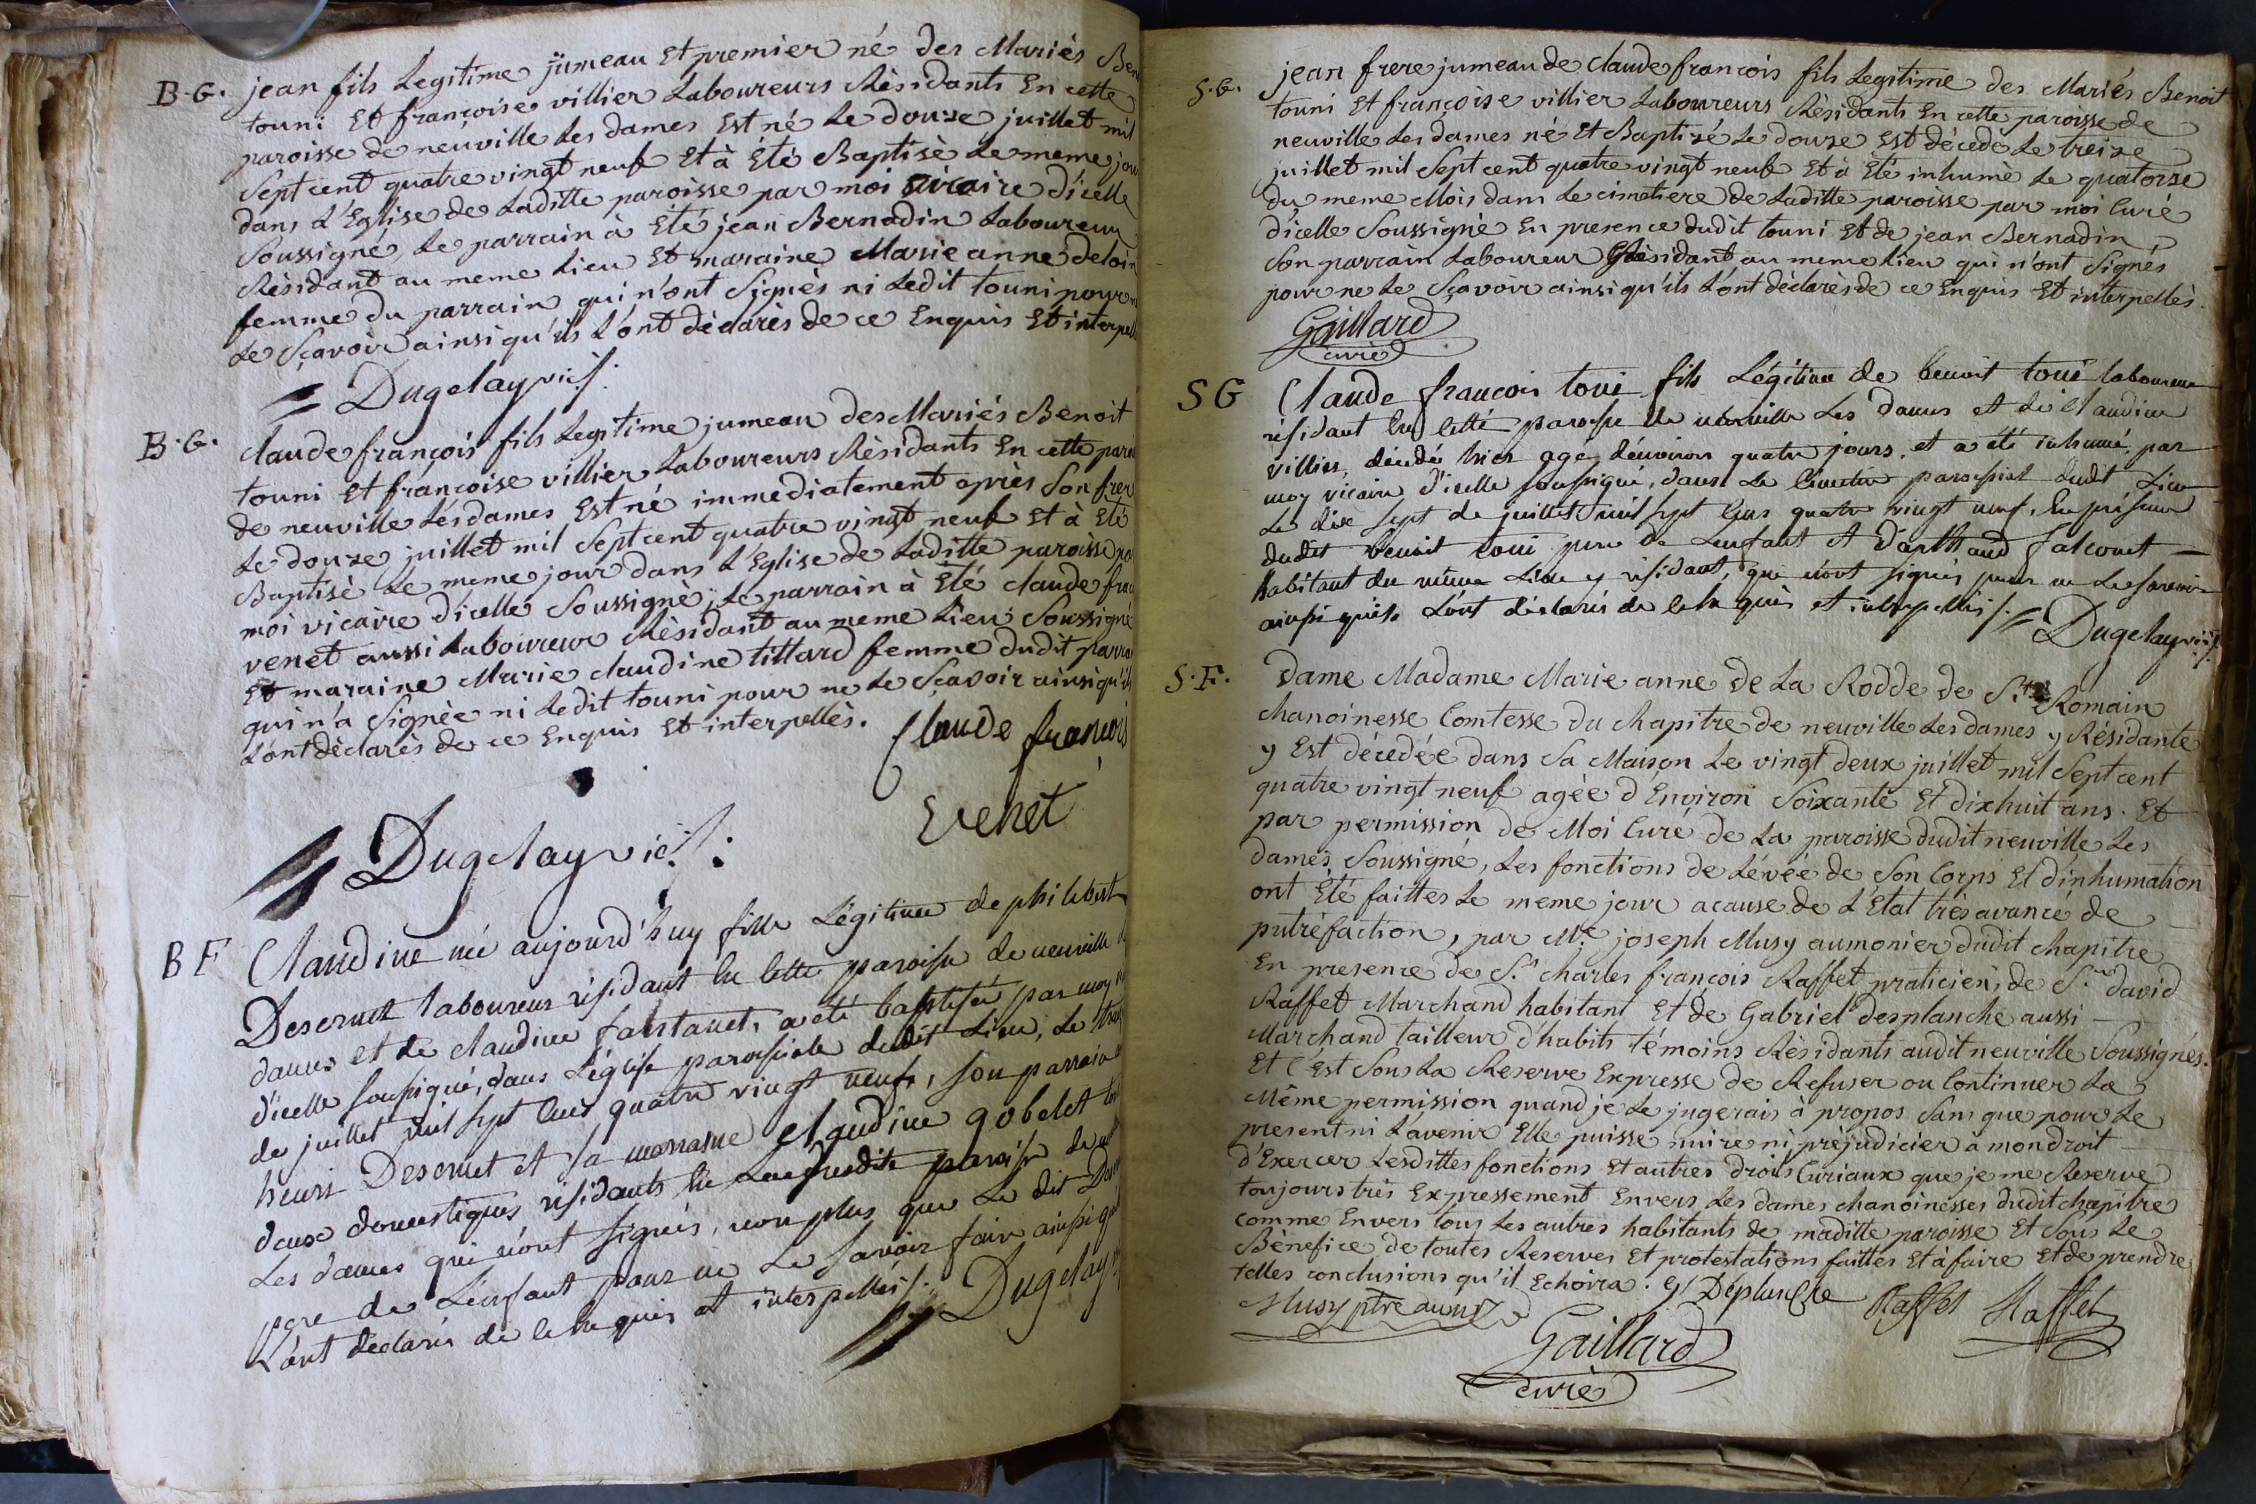 B.G. jean fils Legitime jumeau Et premier né des Mariés Ben
touni Et françoise villier Laboureurs Résidants En cette
paroisse de neuville Les dames Est né Le douze juillet mil
Sept cent quatre vingt neuf Et à Eté Baptisè Le meme jou
dans L'Eglise de Laditte paroisse par moi vicaire d'icelle
Soussigné, Le parrain à Eté jean Bernadin Laboureur
Résidant au meme Lieu Et maraine Marie anne deloin
femme du parrain qui n'ont Signès ni Ledit touni pour n
Le Sçavoir ainsi qu'ils L'ont déclarès de ce Enquis Et interpell
Dugelay vic./.
B.G. claude françois fils Legitime jumeau des Mariés Benoit
touni Et françoise villier Laboureurs Résidants En cette paroi
de neuville Les dames Est né immediatement après Son frer
Le douze juillet mil Sept cent quatre vingt neuf Et à Eté
Baptisè Le meme jour dans L'Eglise de Laditte paroisse pa
moi vicaire d'icelle Soussignè; Le parrain à Eté claude fran
venet aussi Laboureur Résidant au meme Lieu Soussigné
Et maraine Marie claudine tillard femme dudit parra
qui n'a Signèe ni Ledit touni pour ne Le Sçavoir ainsi qu'ils
L'ont dèclarès de ce Enquis Et interpellès. Claude francois
venet
Dugelay vic./.
B F Claudine née aujourd'huy fille Légitime de philibert
Desernet laboureur résidant En Cette paroisse de neuville
dames et de claudine a été baptisée par moy
d'icelle soussigné, dans L'église paroissiale dudit Lieu, Le
de juillet mil sept Cens quatre vingt neuf, son parrain
henri Desernet et sa marraine claudine gobelet
deux domestiques résidants En paroisse de
Les dames qui n'ont signés, non plus que Le dit
pere de L'enfant pour ne Le savoir faire ainsi qu'il
L'ont déclarés de Ce Enquis et interpellés./. Dugelay
S.G. jean frere jumeau de claude françois fils Legitime des Mariés Benoit
touni Et françoise villier Laboureurs Résidants En cette paroisse de
neuville Les dames né Et Baptizé Le douze Est décédé Le treize
juillet mil Sept cent quatre vingt neuf Et à Eté inhumè Le quatorze
du meme Mois dans Le cimetiere de Laditte paroisse par moi Curé
d'icelle Soussignè En presence dudit touni Et de jean Bernadin
Son parrain Laboureur Résidant au meme Lieu qui n'ont Signés
pour ne Le Sçavoir ainsi qu'ils L'ont dèclarès de ce Enquis Et interpellès.
Gaillard
curé
S G Claude françois toui fils Légitime de benoit toui laboureur
résidant En Cette paroisse de neuville Les dames et de Claudine
villier, décédé hier agé d'environ quatre jours, et a été inhumé par
moy vicaire d'icelle soussigné, dans Le Cimetiere paroissial dudit Lieu
Le dix sept de juillet mil sept Cens quatre vingt neuf. En présence
dudit benoit toui pere de Lenfant et d'arthaud falconet
habitant du même Lieu y résidant, qui n'ont signés pour ne Le savoir
ainsi qu'ils L'ont déclarés de Ce Enquis et interpellés./. Dugelay vic./.
S.F. Dame Madame Marie anne De La Rodde de St. Romain
chanoinesse Comtesse du chapitre de neuville Les dames y Résidante
y Est décedée dans Sa Maison Le vingt deux juillet mil Sept cent
quatre vingt neuf agée d'Environ Soixante Et dix huit ans. Et
par permission de Moi Curé de La paroisse dudit neuville Les
dames Soussigné, Les fonctions de Lévée de Son Corps Et d'inhumation
ont Eté faittes Le meme jour acause de L'Etat très avancé de
putréfaction, par Mre joseph Musy aumonier dudit chapitre
En presence de Sr. charles françois Raffet praticien, de Sr. david
Raffet Marchand habitant Et de Gabriel desplanche aussi
Marchand tailleur d'habits témoins Résidants audit neuville Soussignés.
Et C'est Sous La Reserve Expresse de Refuser ou Continuer La
Même permission quand je Le jugerais à propos Sans que pour Le
present ni L'avenir Elle puisse nuire ni préjudicier à mon droit
d'Exercer Lesdittes fonctions Et autres droits Curiaux que je me Reserve
toujours très Expressement Envers Les dames chanoinesses dudit chapitre
comme Envers tous Les autres habitants de maditte paroisse Et Sous Le
Bénefice de toutes Reserves Et protestations faittes Et à faire Et de prendre
telles conclusions qu'il Echoira. G Deplanche Raffet Raffet
Musy ptre aumr
Gaillard
curé